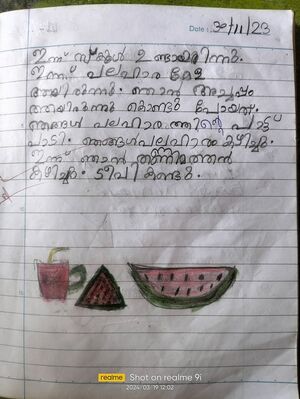 Date: 30/11/23
ഇന്ന് സ്കൂൾ ഉണ്ടായിരിന്നു.
ഇന്ന് പലഹാര മേള
ആയിരുന്നു. ഞാൻ അച്ചപ്പം
ആയിരുന്നു കൊണ്ടു പോയത്.
ഞങ്ങൾ പലഹാരത്തിന്റെ പാട്ട്
പാടി. ഞങ്ങൾ പലഹാരം കഴിച്ചു.
ഇന്ന് ഞാൻ തണ്ണിമത്തൻ
കഴിച്ചു. ടീവി കണ്ടു.
realme Shot on realme 9i
2024/03/19 12:02